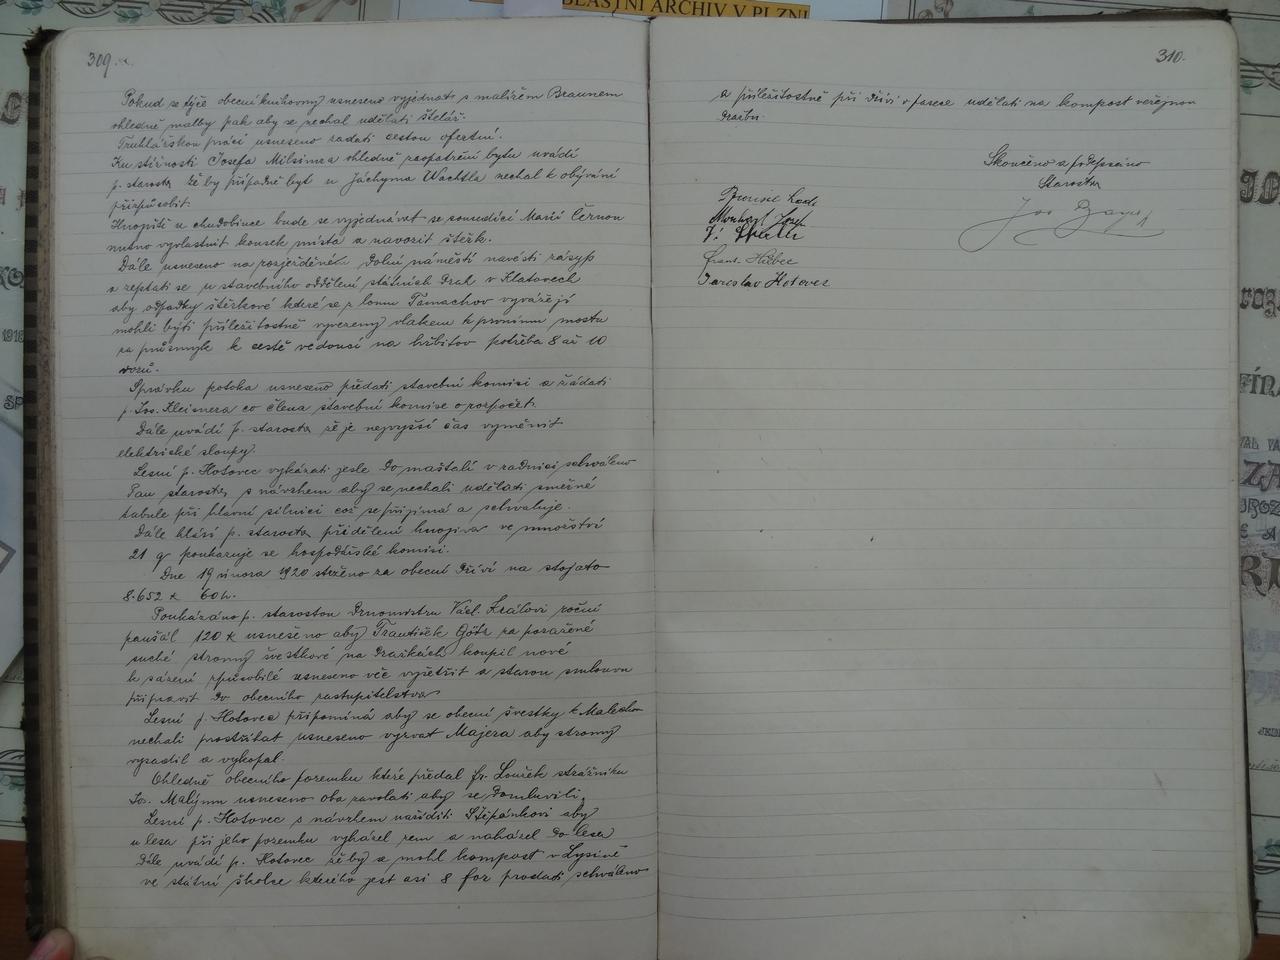 OBLASTNÍ ARCHIV V PLZNI
309.
Pokud se týče obecní knihovny usneseno vyjednati s malířem Braunem
ohledně malby pak aby se nechal udělati štelář.
Truhlářskou práci usneseno zadati cestou ofertní.
Ku stížnosti Josefa Milsimera ohledně zaopatření bytu uvádí
p. starosta že by případně byt u Jáchyma Wachtla nechal k obývání
přizpůsobit.
Hnojiště u chudobince bude se vyjednávat se sousedící Marií Černou
nutno vyvlastnit kousek místa a navozit štěrk.
Dále usneseno na rozježděném Dolní náměstí navésti zásyp
a zeptati se u stavebního oddělení státních drah v Klatovech
aby odpadky štěrkové které se z lomu Tamachov vyvážejí
mohli býti příležitostně vyvezeny vlakem k prvnímu mostu
za průsmyk k cestě vedoucí na hřbitov potřeba 8 až 10
vozů.
Správku potoka usneseno předati stavební komisi a žádati
p. Jos. Kleisnera co člena stavební komise o rozpočet.
Dále uvádí p. starosta že je nejvyšší čas vyměnit
elektrické sloupy.
Lesní p. Hotovec vykázati jesle do maštalí v radnici schváleno
Pan starosta s návrhem aby se nechali udělati směrné
tabule při hlavní silnici což se přijímá a schvaluje.
Dále hlásí p. starosta přidělení hnojiva ve množství
21 q poukazuje se hospodářské komisi.
Dne 19 února 1920 strženo za obecní dříví na stojato
8.652 K 60 h.
Poukázáno p. starostou drnomistru Václ. Královi roční
paušál 120 K usneseno aby František Götz za poražené
suché stromy švestkové na Draškách koupil nové
k sázení způsobilé usneseno věc vyšetřit a starou smlouvu
připravit do obecního zastupitelstva
Lesní p. Hotovec připomíná aby se obecní švestky k Malechov
nechali prostříhat usneseno vyzvat Majera aby stromy
vysadil a vykopal.
Ohledně obecního pozemku které předal Fr. Louček strážníku
Jos. Malýmu usneseno oba zavolati aby se domluvili.
Lesní p. Hotovec s návrhem naříditi Štěpánkovi aby
u lesa při jeho pozemku vyházel zem a naházel do lesa
Dále uvádí p. Hotovec že by se mohl kompost v Lysině
ve státní školce kterého jest asi 8 for prodati schváleno
310.
a příležitostně při dříví v fasece udělati na kompost veřejnou
dražbu.
Skončeno a podepsáno
Starosta
Frant. Huber
Jaroslav Hotovec